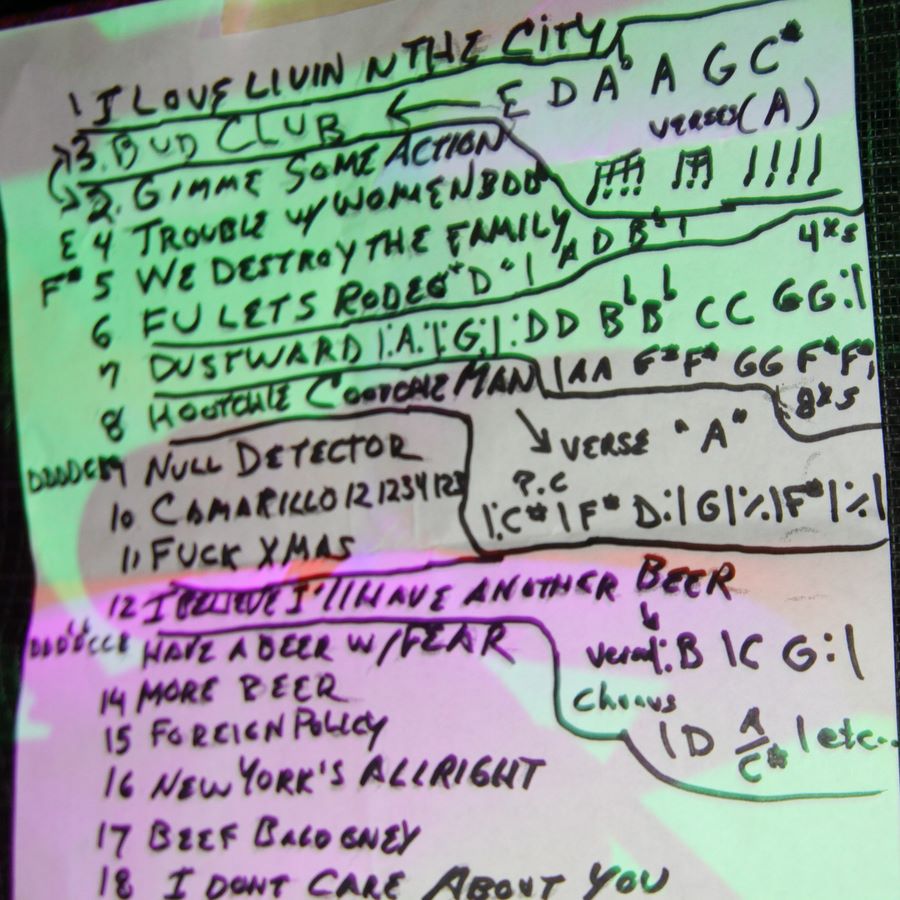 1 I LOVE LIVIN N THE CITY
3. BUD CLUB ← E D Ab A G C#
VERSES (A)
2. GIMME SOME ACTION
E 4 TROUBLE W/ WOMEN BDD
F# 5 WE DESTROY THE FAMILY
6 FU LETS RODEO "D" | A D Bb | 4xs
7 DUSTWARD |:A:|:G:|:DD Bb Bb CC GG:|
8 HOOTCHIE COOTCHIE MAN | AA F#F# GG F#F# 8xs
VERSE "A"
9 NULL DETECTOR
P.C
10 CAMARILLO 12 1234 123 |:C# | F# D:| G | ٪ | F# | ٪ |
11 FUCK XMAS
12 I BELIEVE I'LL HAVE ANOTHER BEER
HAVE A BEER W/ FEAR
:B | C G :|
14 MORE BEER
Chorus
15 FOREIGN POLICY
| D A/C# | etc..
16 NEW YORK'S ALLRIGHT
17 BEEF BALOGNEY
18 I DONT CARE ABOUT YOU